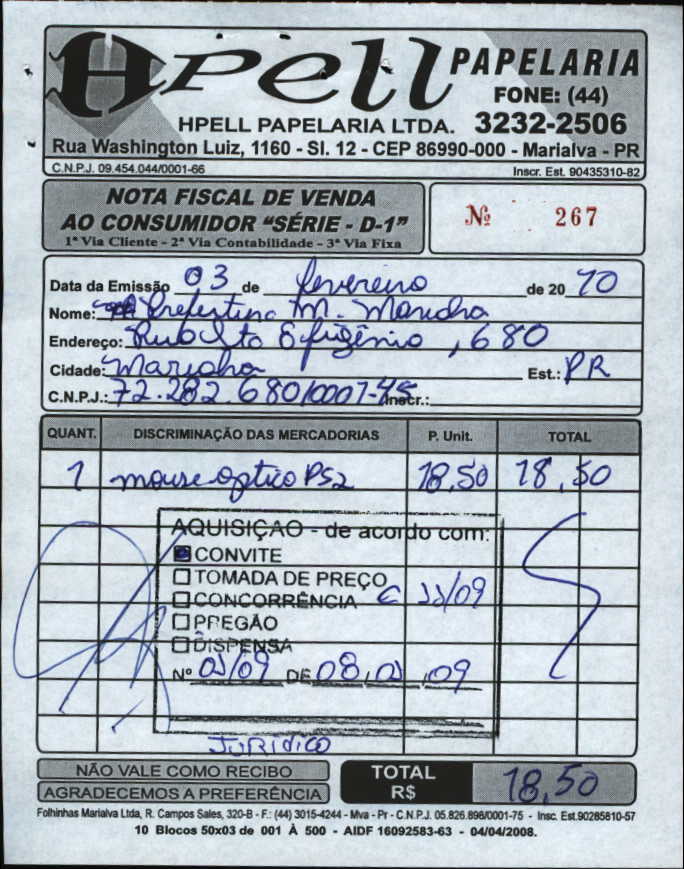 HPell PAPELARIA
FONE: (44)
HPELL PAPELARIA LTDA. 3232-2506
Rua Washington Luiz, 1160 - Sl. 12 - CEP 86990-000 - Marialva - PR
C.N.P.J. 09.454.044/0001-66 Inscr. Est. 90435310-82
NOTA FISCAL DE VENDA
AO CONSUMIDOR "SÉRIE - D-1"
1ª Via Cliente - 2ª Via Contabilidade - 3ª Via Fixa
Nº 267
Data da Emissão 03 de fevereiro de 20 10
Nome: Prefeitura M.
Endereço: 680
Cidade: Est.: PR
C.N.P.J.: 72.282.680/0001-45 Inscr.:
QUANT. DISCRIMINAÇÃO DAS MERCADORIAS P. Unit. TOTAL
1 mouse optico PS2 18,50 18,50
AQUISIÇÃO - de acordo com:
CONVITE
TOMADA DE PREÇO
CONCORRÊNCIA
PREGÃO
DISPENSA
Nº DE 09
JURIDICO
NÃO VALE COMO RECIBO
AGRADECEMOS A PREFERÊNCIA
TOTAL R$ 18,50
Folhinhas Marialva Ltda, R. Campos Sales, 320-B - F.: (44) 3015-4244 - Mva - Pr - C.N.P.J. 05.826.898/0001-75 - Insc. Est.90285810-57
10 Blocos 50x03 de 001 À 500 - AIDF 16092583-63 - 04/04/2008.